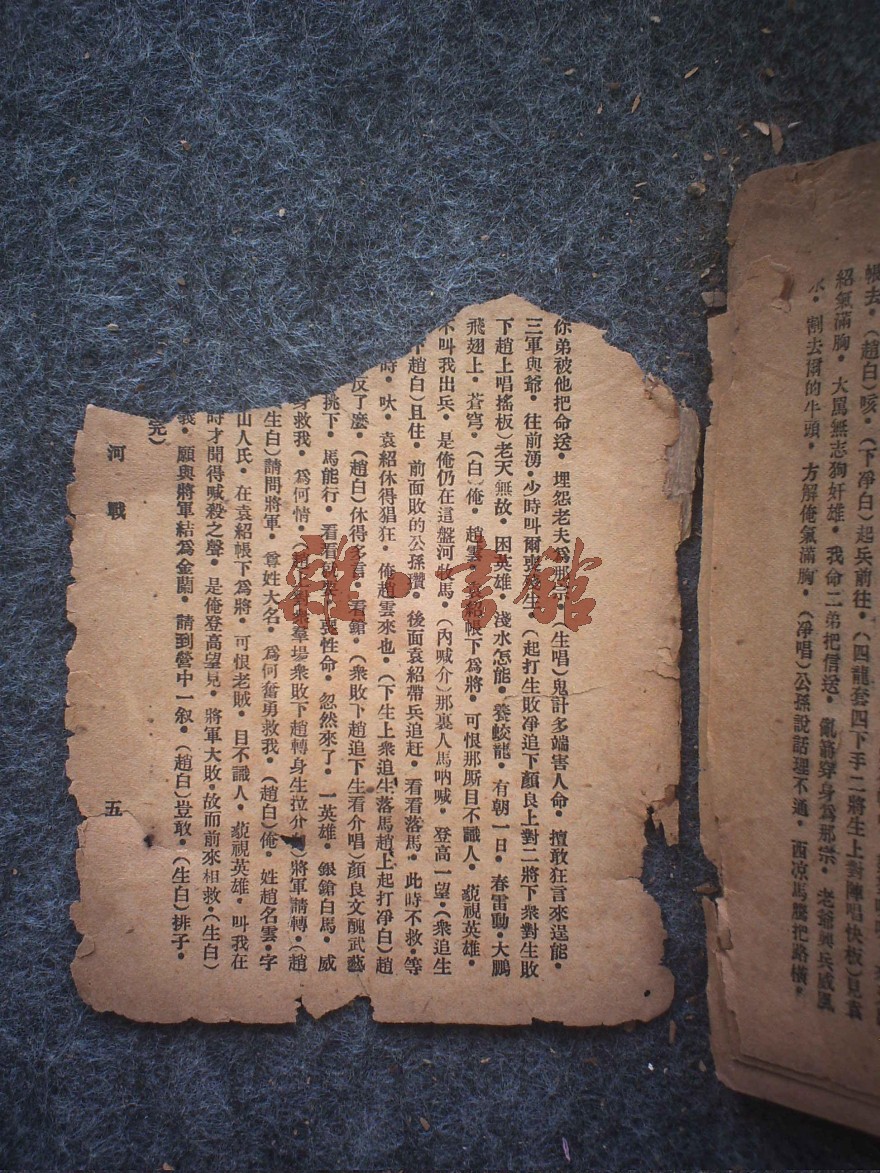 帳去。(趙白)咳。(下淨白)起兵前往。(四龍套四下手二將生上對陣唱快板)見袁
紹氣滿胸。大罵無志狗奸雄。我命二弟把信送。亂箭穿身爲那宗。老爺興兵威風
割去爾的牛頭。方解俺氣滿胸。(淨唱)公孫說話理不通。西凉馬騰把路橫。
你弟被他把命送。埋怨老夫爲那宗。(生唱)鬼計多端害人命。擅敢狂言來逞能。
三軍與爺。往前湧。少時叫爾喪殘生。(起打生敗淨追下顏良上對二將下衆對生敗
下趙上唱搖板)老天無故。困英雄。淺水怎能。養蛟龍。有朝一日。春雷動。大鵬
飛翅上。蒼穹。(白)俺。趙雲。袁紹帳下爲將。可恨那厮目不識人。藐視英雄。
不叫我出兵。是俺仍在這盤河牧馬。(內喊介)那裏人馬吶喊。登高一望。(衆追生
下趙白)且住。前面敗的公孫瓚。後面袁紹帶兵追赶。看看落馬。此時不救。等
時。吠。袁紹休得猖狂。俺趙雲來也。(下生上衆追生落馬趙上起打淨白)趙
反了麽。(趙白)休得多言。看鎗。(衆敗下趙追下生看介唱)顏良文醜武藝
挑下。馬能行。看看 喪性命。忽然來了。一英雄。銀鎗白馬。威
身救我。爲何情。(趙上對衆羣場衆敗下趙轉身生拉介 )將軍請轉。(趙
生白)請問將軍。尊姓大名。爲何奮勇救我。(趙白)俺。姓趙名雲。字
山人氏。在袁紹帳下爲將。可恨老賊。目不識人。藐視英雄。叫我在
時才聞得喊殺之聲。是俺登高望見。將軍大敗。故而前來相救。(生白)
義。願與將軍結爲金蘭。請到營中一叙。(趙白)豈敢。(生白)排子。
完)
河戰 五
雜·書館